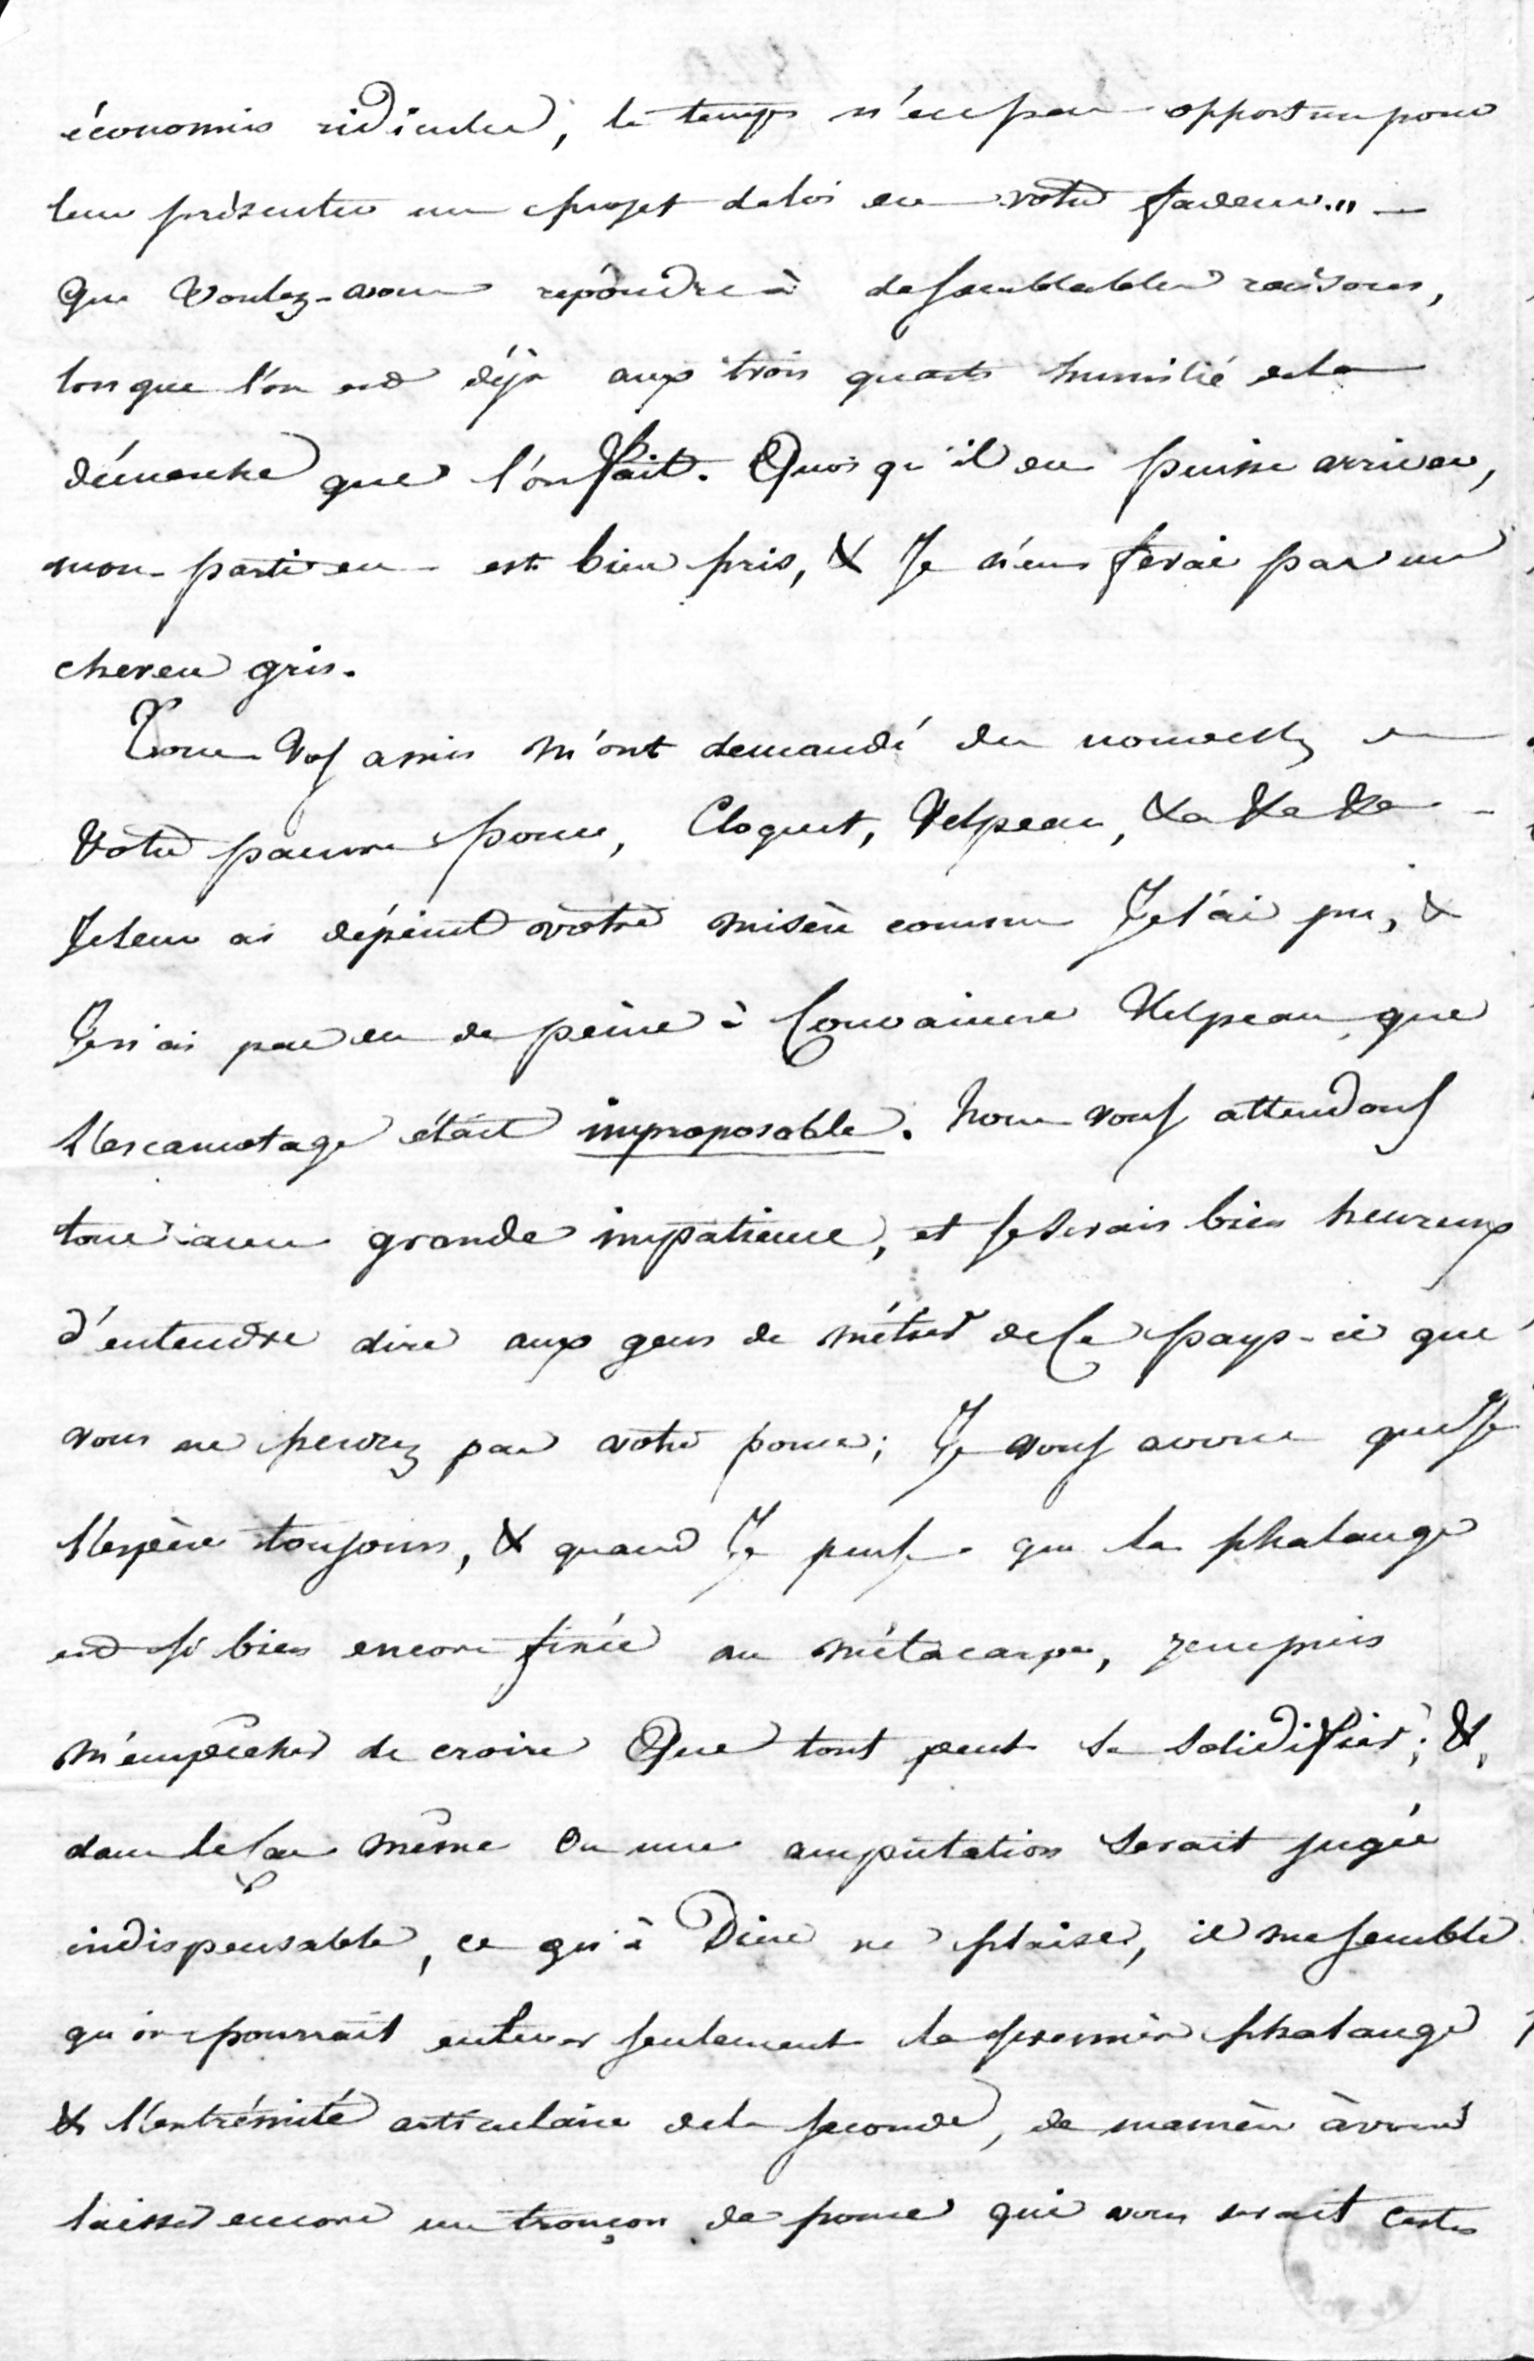 économies ridicules, le temps n'est pas opportun pour
leur présenter un projet de loi en votre faveur." —
Que voulez-vous repôndre à de semblables raisons,
lorsque l'on est déjà aux trois quarts humilié de la
démarche que l'on fait. Quoi qu'il en puisse arriver,
mon parti en est bien pris, & Je n'en ferai pas un
cheveu gris.
Tous vos amis m'ont demandé des nouvelles de
votre pauvre pouce, Cloquet, Velpeau, &a &a &a
Je leur ai dépeint votre misère comme Je l'ai pu, &
Je n'ai pas eu de peine à Convaincre Velpeau, que
l'escamotage était improposable. Nous vous attendons
tous avec grande impatience, et Je serais bien heureux
d'entendre dire aux gens de métier de Ce pays-ci que
vous ne perdrez pas votre pouce; Je vous avoue que Je
l'espère toujours, & quand Je pense que la phalange
est si bien encore fixée au métacarpe, Je ne puis
m'empêcher de croire Que tout peut se solidifier; &,
dans le Cas même où une amputation serait jugée
indispensable, ce qu'à Dieu ne plaise, il me semble
qu'on pourrait enlever seulement la première phalange
& l'extrémité articulaire de la seconde, de manière à vous
laisser encore un tronçon de pouce qui vous serait certes